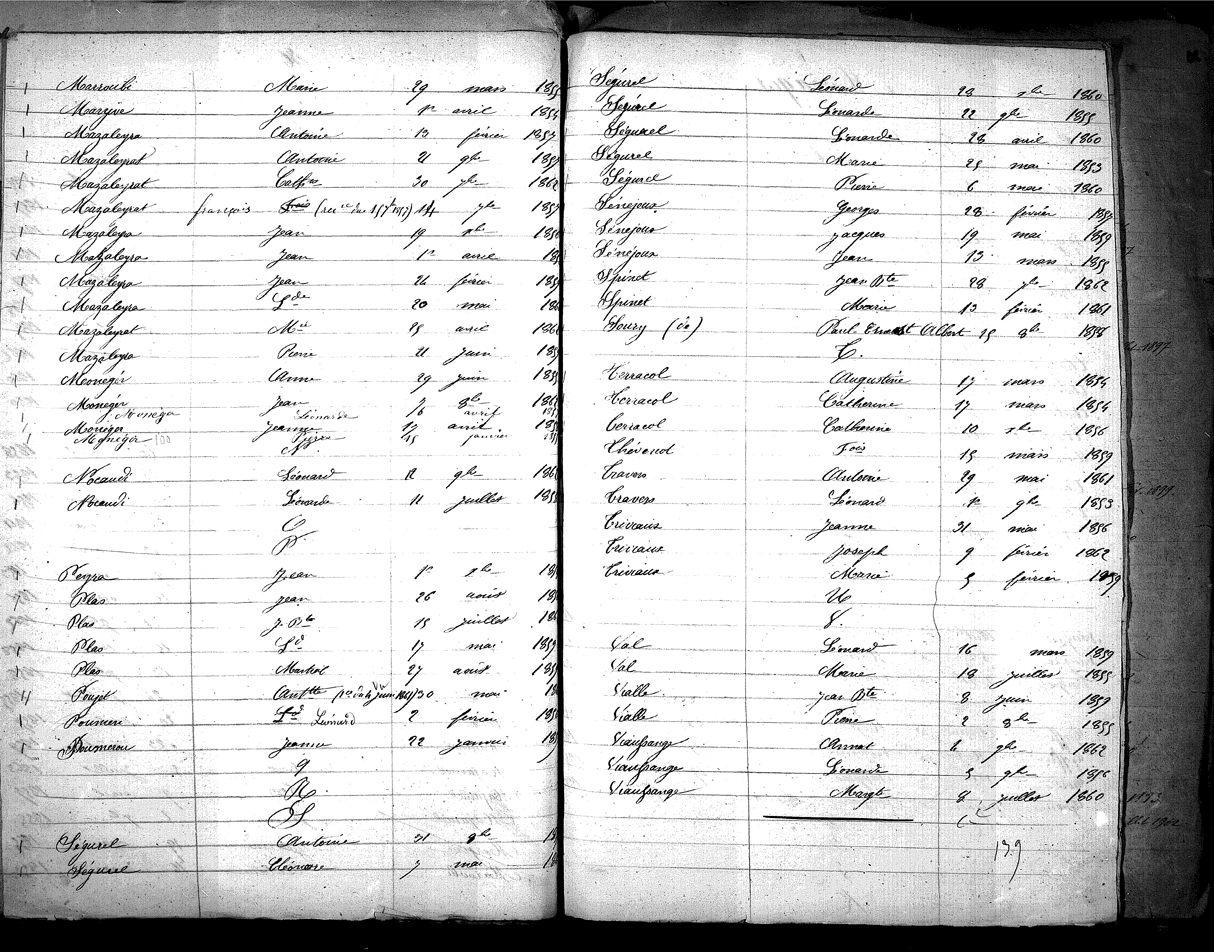 1 Marroubi Marie 29 mars 185
1 Margive Jeanne 1er avril 185
1 Mazaleyra Antoine 13 février 1857
1 Mazaleyrat Antoine 21 9bre 185
1 Mazaleyrat Cathne 30 7bre 1862
1 Mazaleyrat françois 14 7bre 185
1 Mazaleyra Jean 19 xbre 185
1 Mazaleyra Jean 1er avril 18
1 Mazaleyra Jean 26 février 185
1 Mazaleyra Lde 20 mai 18
1 Mazaleyrat Mie 25 avril 186
1 Mazaleyra Pierre 21 juin 185
1 Monéger Anne 29 juin 185
1 Monéger Jean 7 8bre 186
Monéga Léonarde 16 avril
1 Monéger Jeanne 12 avril 185
Monéger 15 janvier
N
1 Nocaudi Léonard 12 9bre 186
1 Nocaudi Léonarde 11 juillet 185
O
P
1 Peyra Jean 1er xbre 18
1 Plas Jean 26 août 18
1 Plas J. Bte 15 juillet 18
1 Plas Ld 17 mai 185
1 Plas Martial 27 août 185
Poujet Anttte 30 mai 18
1 Léonard 2 février 185
Poumerou Jeanne 22 janvier 18
Q
R.
S
1 Ségurel Antoine 21 8bre 18
Ségurel Eléonore 7 mai 18
Ségurel Léonard 28 xbre 1860
Ségurel Léonarde 22 9bre 1855
Ségurel Léonarde 28 avril 1860
Ségurel Marie 25 mai 1853
Ségurel Pierre 6 mai 1860
Sénéjoux Georges 28 février 185
Sénéjoux Jacques 19 mai 1859
Sénéjoux Jean 13 mars 1855
Spinet Jean Bte 28 7bre 1862
Spinet Marie 13 février 1861
Soury (de) Paul Ernest Albert 15 8bre 1858
T.
Terracol Augustine 17 mars 1854
Terracol Catherine 17 mars 1854
Terracol Catherine 10 xbre 1856
Thévenot Fois 15 mars 1859
Travers Antoine 29 mai 1861
Travers Léonard 1er 9bre 1853
Trivіaux Jeanne 31 mai 1856
Triviaux Joseph 9 février 1862
Triviaux Marie 5 février 1859
U
V.
Val Léonard 16 mars 1859
Val Marie 18 juillet 1855
Vialle Jean Bte 8 juin 1859
Vialle Pierre 2 8bre 1855
Viaufrange Annet 6 9bre 1862
Viaufrange Léonarde 5 9bre 1856
Viaufrange Margte 8 juillet 1860
139
1897
1899